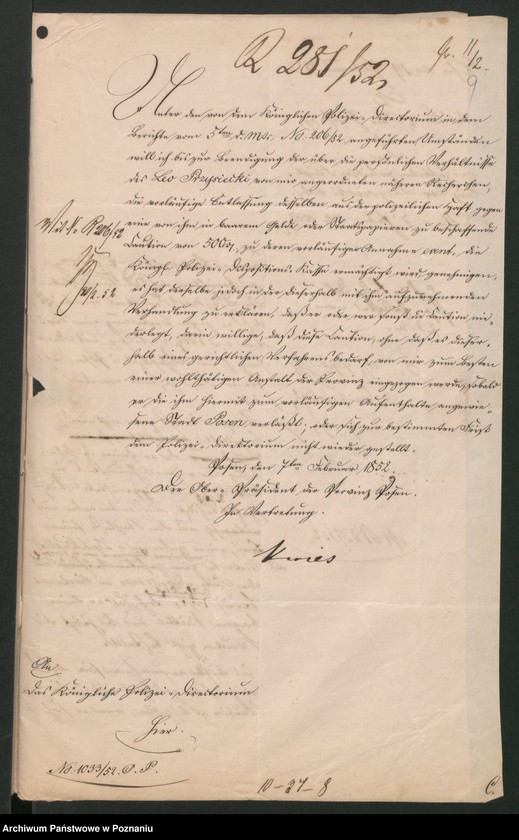 R 281/52
pr. 11/2.
9
Unter den von dem Königlichen Polizei-Directorium in dem
Berichte vom 5ten d. Mts. No. 206/52 angeführten Umständen
will ich bis zur Beendigung der über die persönlichen Verhältnisse
des Leo Przysiecki von mir angeordneten nähern Recherchen,
die vorläufige Entlassung desselben aus der polizeilichen Haft gegen
eine von ihm in baarem Gelde, oder Staatspapieren zu beschaffende
Caution von 500 zu deren vorläufiger Annahme event. die
Königl. Polizei-Dispositions-Kasse ermächtigt wird, genehmigen,
es hat derselbe jedoch in der dieserhalb mit ihm aufzunehmenden
Verhandlung zu erklären, daß er oder wer sonst die Caution nie-
derlegt, darin willige, daß diese Caution, ohne daß es dieser-
halb eines gerichtlichen Verfahrens bedarf, von mir zum Besten
einer wohlthätigen Anstalt der Provinz eingezogen werde, sobald
er die ihm hiermit zum vorläufigen Aufenthalte angewie-
sene Stadt Posen verläßt, oder sich zur bestimmten Frist
dem Polizei-Direktorium nicht wieder gestellt.
Posen, den 7ten Februar 1852.
Der Ober-Präsident der Provinz Posen.
In Vertretung.
R 206/52
52
An
Das Königliche Polizei-Directorium
Hier.
No. 1033/52. O. P.
10-27-8
C.
Archiwum Państwowe w Poznaniu